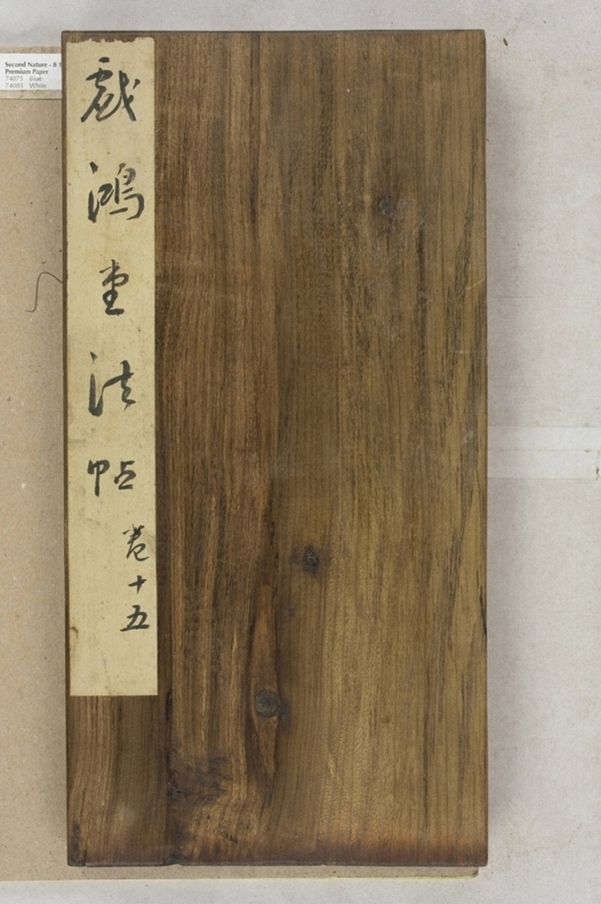 戲鴻堂法帖
卷十五
Second Nature - 8
Premium Paper
74075 Blue
74085 White